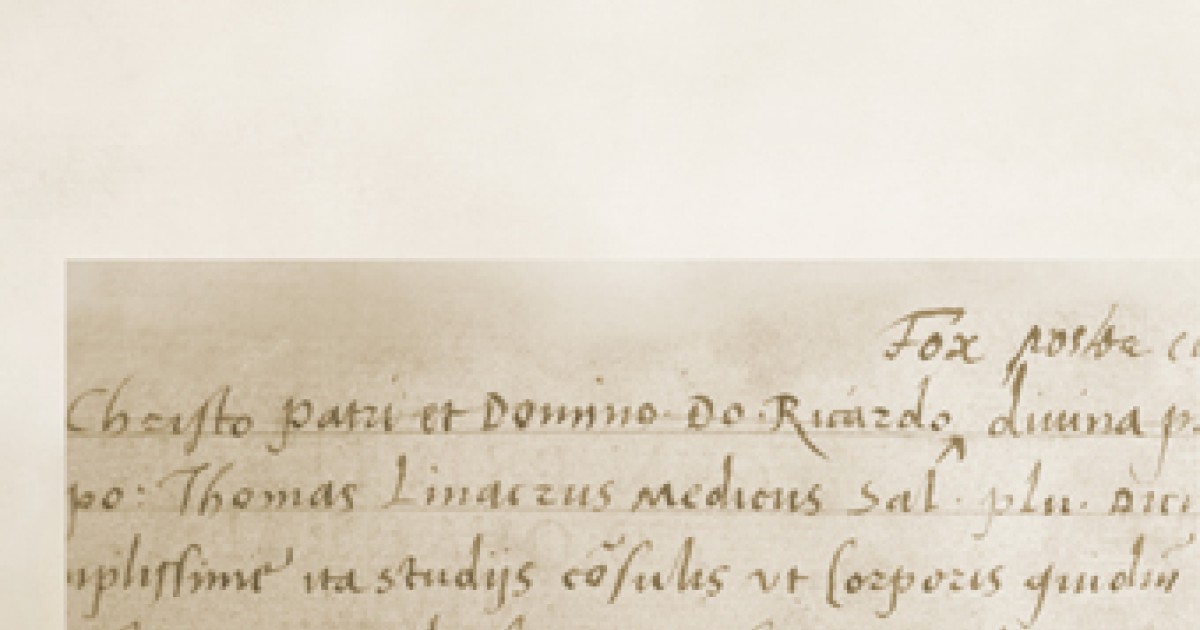 Fox postea
Christo patri et Domino Do. Ricardo divina
po: Thomas Linacrus Medicus Sal. plu.
ita studijs cõsulis vt Corporis quidẽ